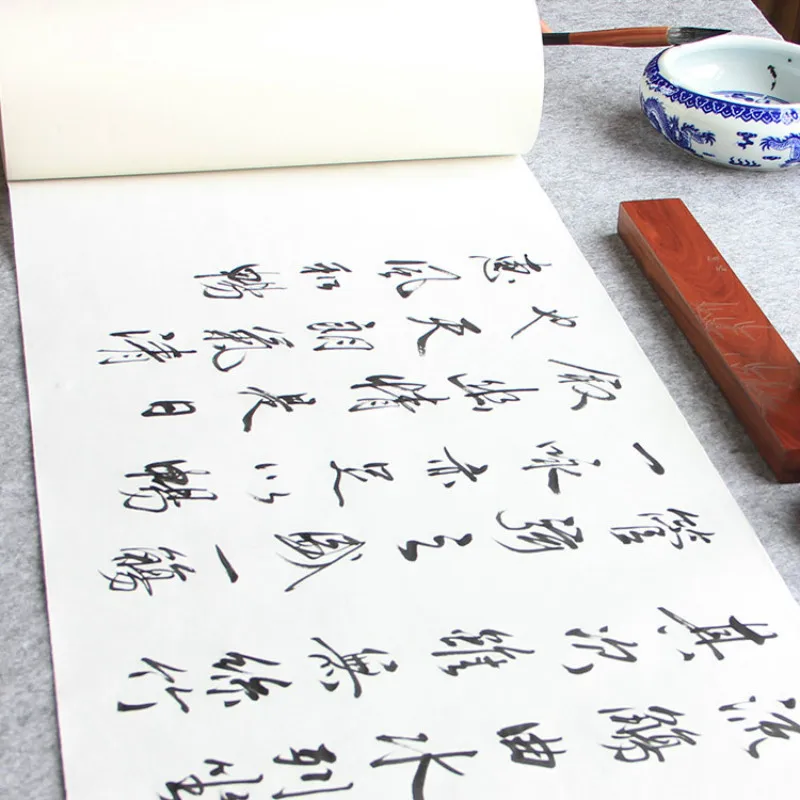 流觴曲水列坐
其次雖無絲竹
管弦之盛一觴
一詠亦足以暢
敘幽情是日
也天朗氣清
惠風和暢